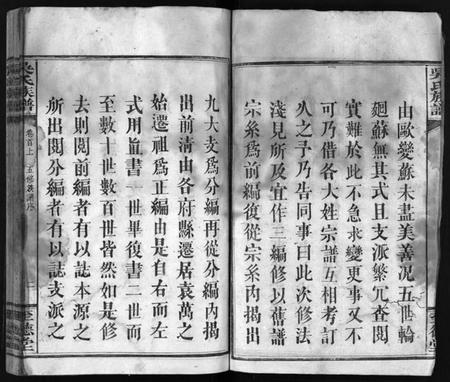 吳氏族譜
由歐變蘇未盡美善况五世輪
廻蘇無其式且支派繁冗查閱
實難於此不急求變更事又不
可乃借各大姓宗譜互相考訂
久之予乃告同事曰此次修法
淺見所及宜作三編修以舊譜
宗系爲前編復從宗系內揭出
九大支爲分編再從分編內揭
出前清由各府縣遷居袁萬之
始遷祖爲正編由是自右而左
式用旨書一世畢復書二世而
至數十世數百世皆然如是修
去則閱前編者有以誌本源之
所出閱分編者有以誌支派之
吳氏族譜
卷首上
五修族譜序
至德堂